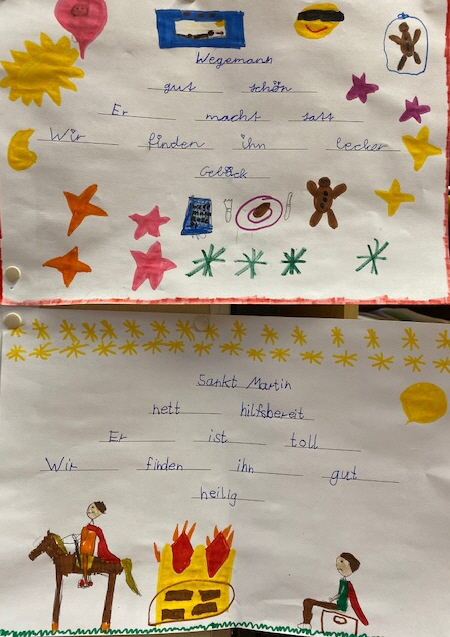 Wegemann
gut schön
Er macht satt
Wir finden ihn lecker
Gebäck
Sankt Martin
nett hilfsbereit
Er ist toll
Wir finden ihn gut
heilig